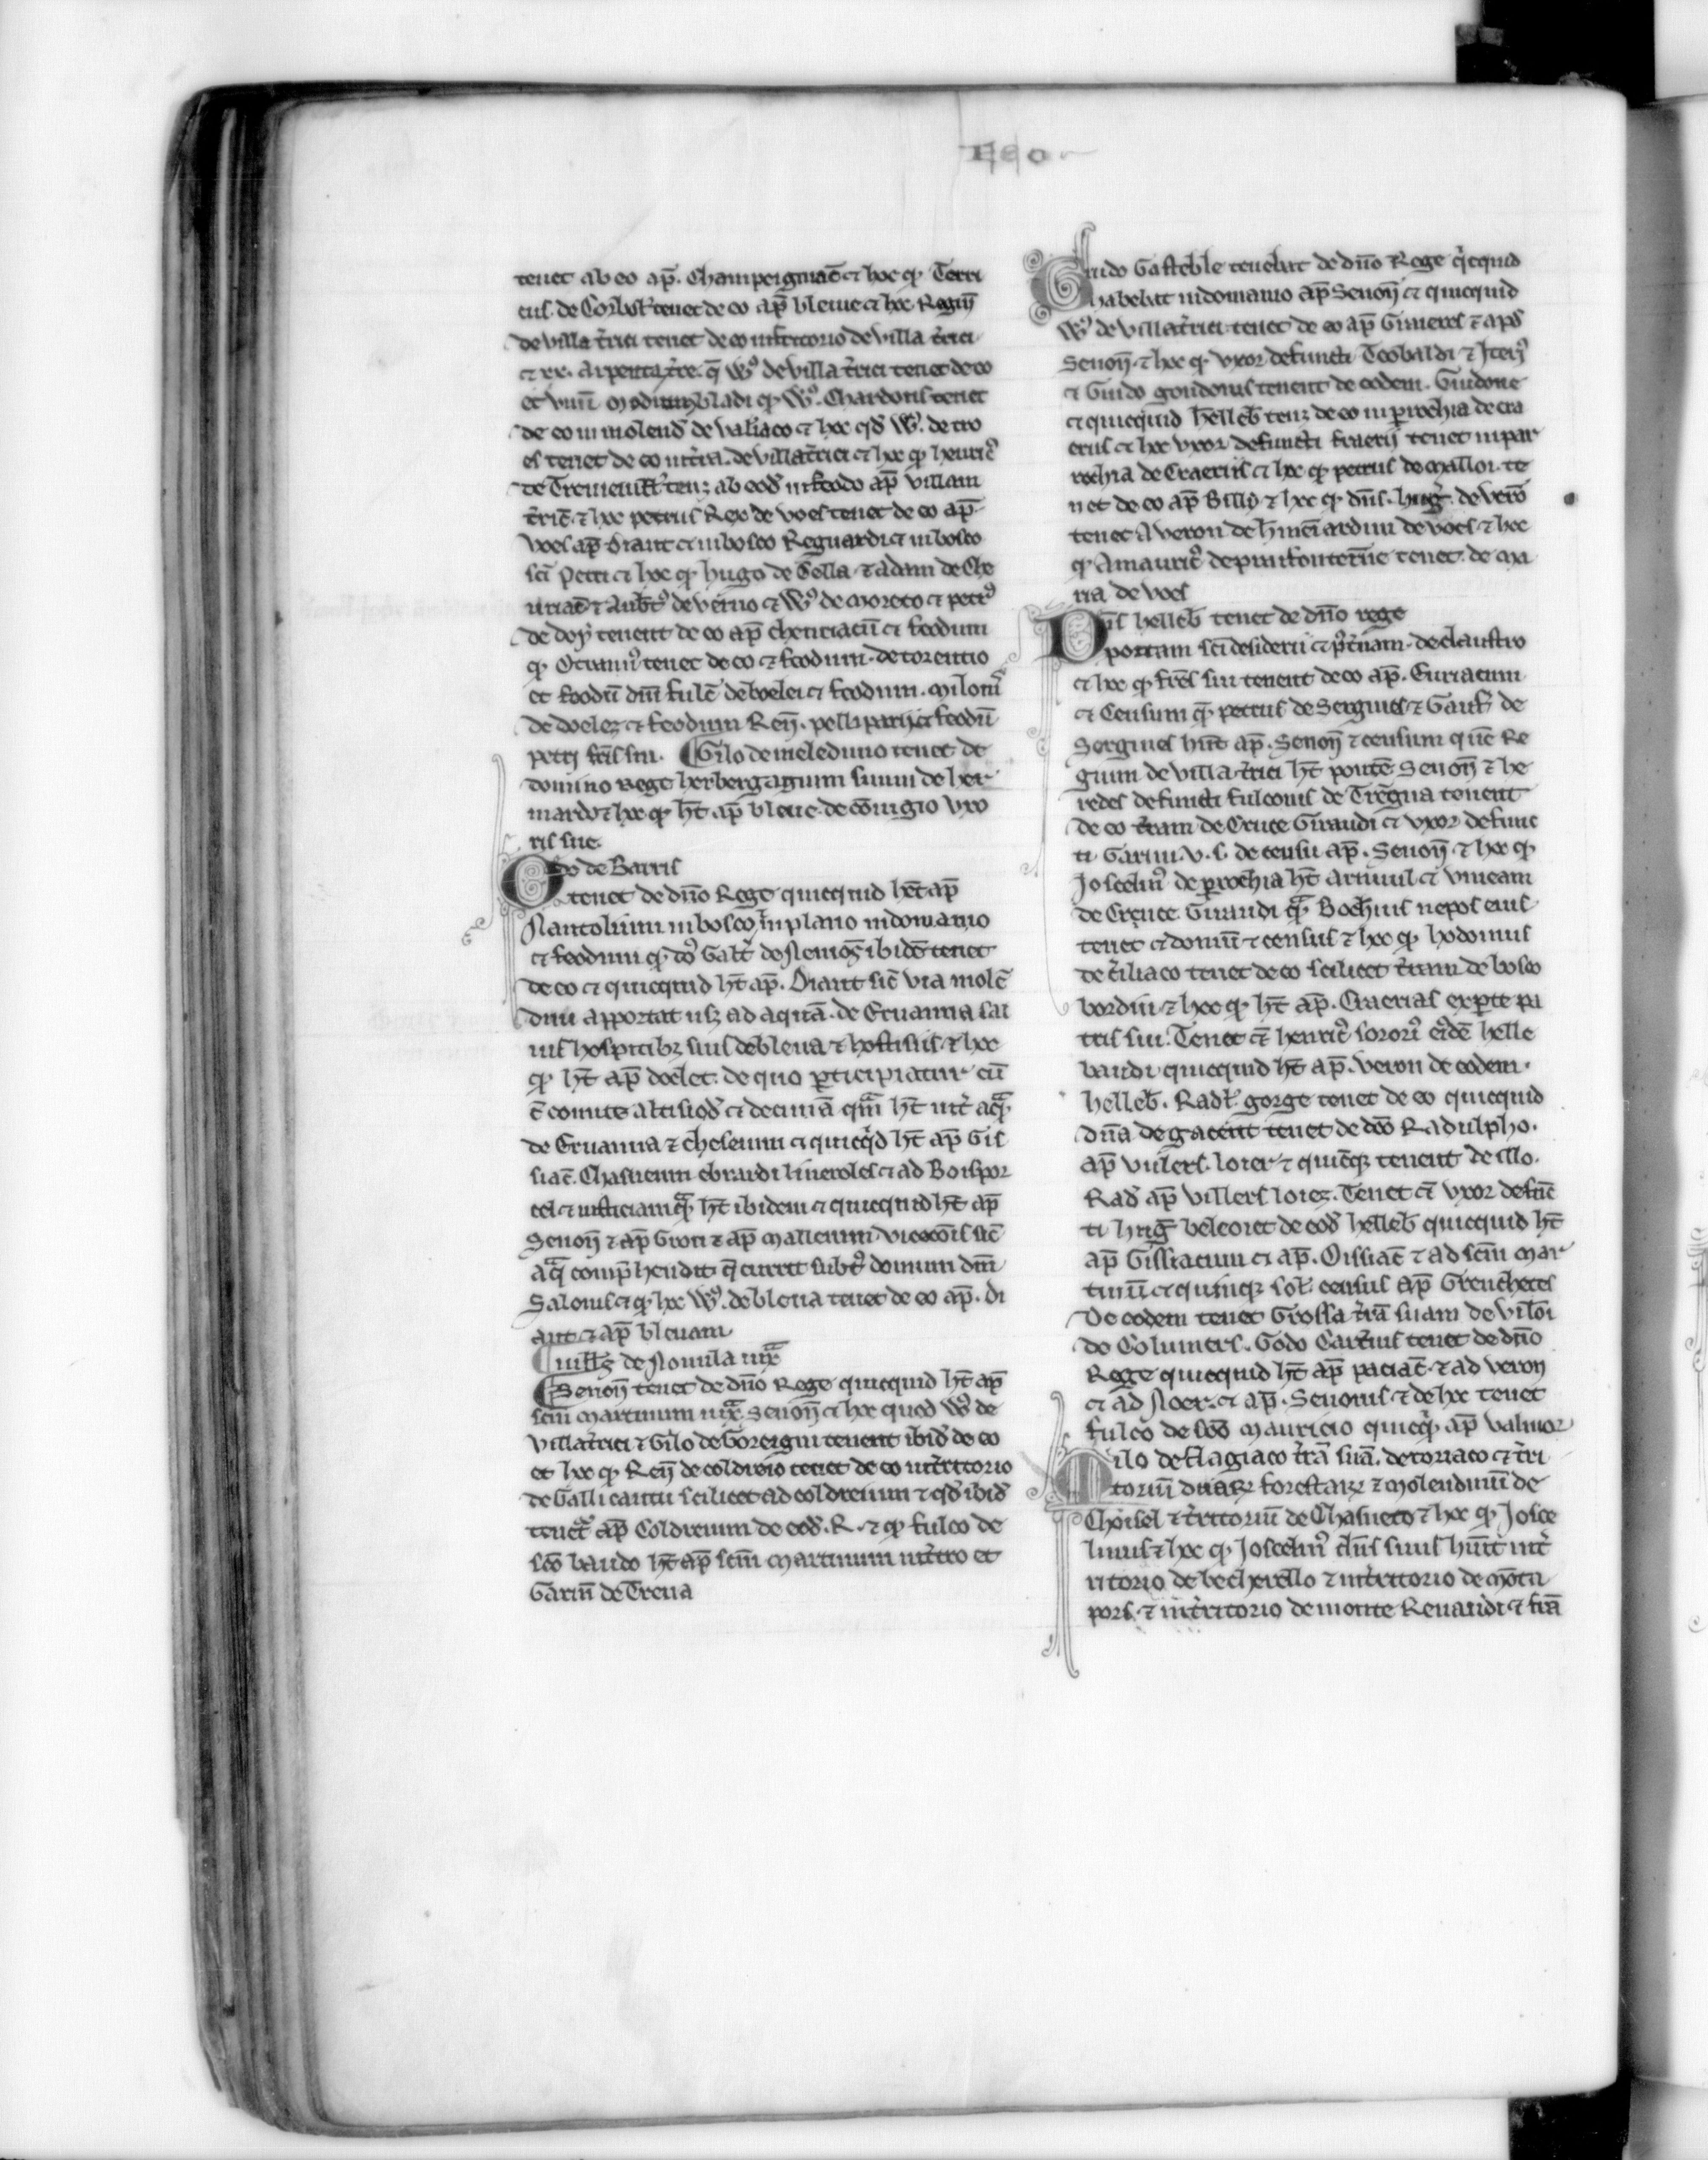 tenet ab eo ap̄. Champeigniac̄ ⁊ hoc qḍ Terri
cus de Corbol' tenet de eo ap̄ bleue ⁊ hoc Regiñ
de villa t̾rici tenet de eo in t̾ritorio de villa t̾rici
⁊ xx. Arpenta t̾re. q̄ Wꝰ de villa t̾rici tenet de eo
et vnū modium bladi qḍ Wꝰ. Chardonis tenet
de eo in molend̄ de valiaco ⁊ hoc qd̄ Wꝰ. de tro
es tenet de eo in t̾ra. de villat̾rici ⁊ hoc qḍ henricꝰ
de tenꝫ ab eod̄ in feodo ap̄ villam
t̾ric̄ ⁊ hoc petrus Rex de voes tenet de eo ap̄
voes ap̄ diant ⁊ in bosco Reguardi ⁊ in bosco
sc̄i Petri ⁊ hoc qḍ hugo de Tella ⁊ adam de Che
uriac̄ ⁊ Aub̄tꝰ de verno ⁊ Wꝰ de moreto ⁊ petrꝰ
de doy tenent de eo ap̄ chenriacū ⁊ feodum
qḍ tenet de eo ⁊ feodum. de torentio
et feodū dn̄i fulc̄ de boelei ⁊ feodum. milonis
de doelez ⁊ feodum Reñ. pelliparij ⁊ feodū
petri fr̄is sui. ¶ Gilo de meleduno tenet de
domino Rege herbergagium suum de her
mardo ⁊ hoc qḍ ht̄ ap̄ bleue. de cōiugio vxo
ris sue.
Odo de Barris
tenet de dn̄o Rege quicquid ht̄ ap̄
Nantolium in bosco ⁊ in plano in domanio
⁊ feodum qḍ dꝰ Galt̄ de Nemoꝫ ibidē tenet
de eo ⁊ quicquid ht̄ ap̄. Diant sic̄ via molē
dini apportat usꝫ ad aquā. de Eruanna sal
uis hospitibꝫ suis de bleua ⁊ hostisiis ⁊ hoc
qḍ ht̄ ap̄ doelet. de quo participiatur cū
c̄ comite altisiod̄ ⁊ decimā quā ht̄ int̾ aquā
de Eruanna ⁊ cheseium ⁊ quicq̄d ht̄ ap̄ Gis
siac̄. Chasneium ebrardi liueroles ⁊ ad Boispor
cel ⁊ iusticiam quā ht̄ ibidem ⁊ quicquid ht̄ ap̄
Senoñ ⁊ ap̄ Groci ⁊ ap̄ malleium vicecōis sic̄
aq̄ comp̄hendit q̄ currit subtꝰ domum dn̄i
Salonis ⁊ qḍ hoc Wꝰ. de bleua tenet de eo ap̄. di
ant ⁊ ap̄ bleuam
¶ uillꝫ de Nouila iux̄
¶ Senoñ tenet de dn̄o Rege quicquid ht̄ ap̄
sc̄m martinum iux̄. Senoñ ⁊ hoc quod Wꝰ de
villat̾rici ⁊ Gilo de Goreigni tenent ibid̄ de eo
et hoc qḍ Reñ de coldreio tenet de eo in t̾ritorio
de Galli cantu scilicet ad coldreium ⁊ qd̄ ibid̄
tenetꝰ ap̄ Coldreium de eod̄. R. ⁊ qḍ fulco de
sc̄o baudo ht̄ ap̄ sc̄m martinum in t̾tro et
Gariñ de Treua
Guido Gasteble tenebat de dn̄o Rege q̄cquid
habebat in domanio ap̄ Senoñ ⁊ quicquid
Wꝰ de villat̾rici tenet de eo ap̄ Gimeres ⁊ apd̄
Senoñ. ⁊ hoc qḍ vxor defuncti Teobaldi ⁊ Iterꝰ
⁊ Guido gondonus tenent de eodem. Guidone
⁊ quicquid helleb̄ tenꝫ de eo in p̄rochia de cra
erus ⁊ hoc vxor defuncti fraerij tenet in par
rochia de Craeriis ⁊ hoc qḍ petrus de mallor. te
net de eo ap̄ Billy ⁊ hoc qḍ dn̄s. hug̾. de verō
tenet a veron de h̄menardum de voes ⁊ hoc
qḍ Amauricꝰ de prinfonteñe tenet. de ma
ria de voes
Dn̄s helleb̄ tenet de dn̄o rege
portam sc̄i desiderii ⁊ p̄t̾nam. de claustro
⁊ hoc qḍ fr̄es sui tenent de eo ap̄. Euriacum
⁊ Censum quē petrus de Sergines ⁊ Gauf̄ de
Sergines hn̄t ap̄. Senoñ ⁊ censum quē Re
gium de villa t̾rici ht̄ pontē Senoñ ⁊ he
redes defuncti fulconis de Tregua tenent
de eo t̾ram de Cruce Giraudi ⁊ vxor defunc
ti Garini. v. s. de censu ap̄. Senoñ ⁊ hoc qḍ
Joscelinꝰ de p̄rochia ht̄ arnuul ⁊ vineam
de Cruce. Giraudi quā Bochius nepos eius
tenet ⁊ domū ⁊ census ⁊ hoc qḍ hodomus
de t̾iliaco tenet de eo scilicet t̾ram de bosco
bordin ⁊ hoc qḍ ht̄ ap̄. Craerias ex p̄te pa
tris sui. Tenet c̄ henricꝰ sororꝰ eꝰdē helle
baudi quicquid ht̄ ap̄. veron de eodem.
helleb̄. Rad'. gorge tenet de eo quicquid
dn̄a de gacent tenet de dc̄o Radulpho.
ap̄ vilers. loier ⁊ quicq̄ tenent de illo.
Rad̄ ap̄ villers loiez. Tenet c̄ vxor defūc
ti huḡ beleoret de eod̄ helleb̄ quicquid ht̄
ap̄ Gissiacum ⁊ ap̄. Oissiac̄ ⁊ ad sc̄m mar
tinū ⁊ quinqꝫ sol. census ap̄ Grenchetes
De eodem tenet Grossa t̾rā suam de vilōi
do Columers. Godo Carꝰuis tenet de dn̄o
Rege quicquid ht̄ ap̄ paciac̄. ⁊ ad veron
⁊ ad Noer. ⁊ ap̄. Senonis ⁊ de hoc tenet
fulco de sc̄o mauricio quicq̄ ap̄ valmor
Milo de flagiaco t̾rā suā. de toriaco ⁊ t̾ri
toriū duaꝝ forestaꝝ ⁊ molendinū de
Choisel ⁊ t̾ritoriū de Chasneto ⁊ hoc qḍ Josce
linus ⁊ hoc qḍ Joscelinꝰ cl̄us suus hn̄t in t̾
ritorio de becherello ⁊ in t̾ritorio de mōta
pors. ⁊ in t̾ritorio de monte Renaudi ⁊ frā